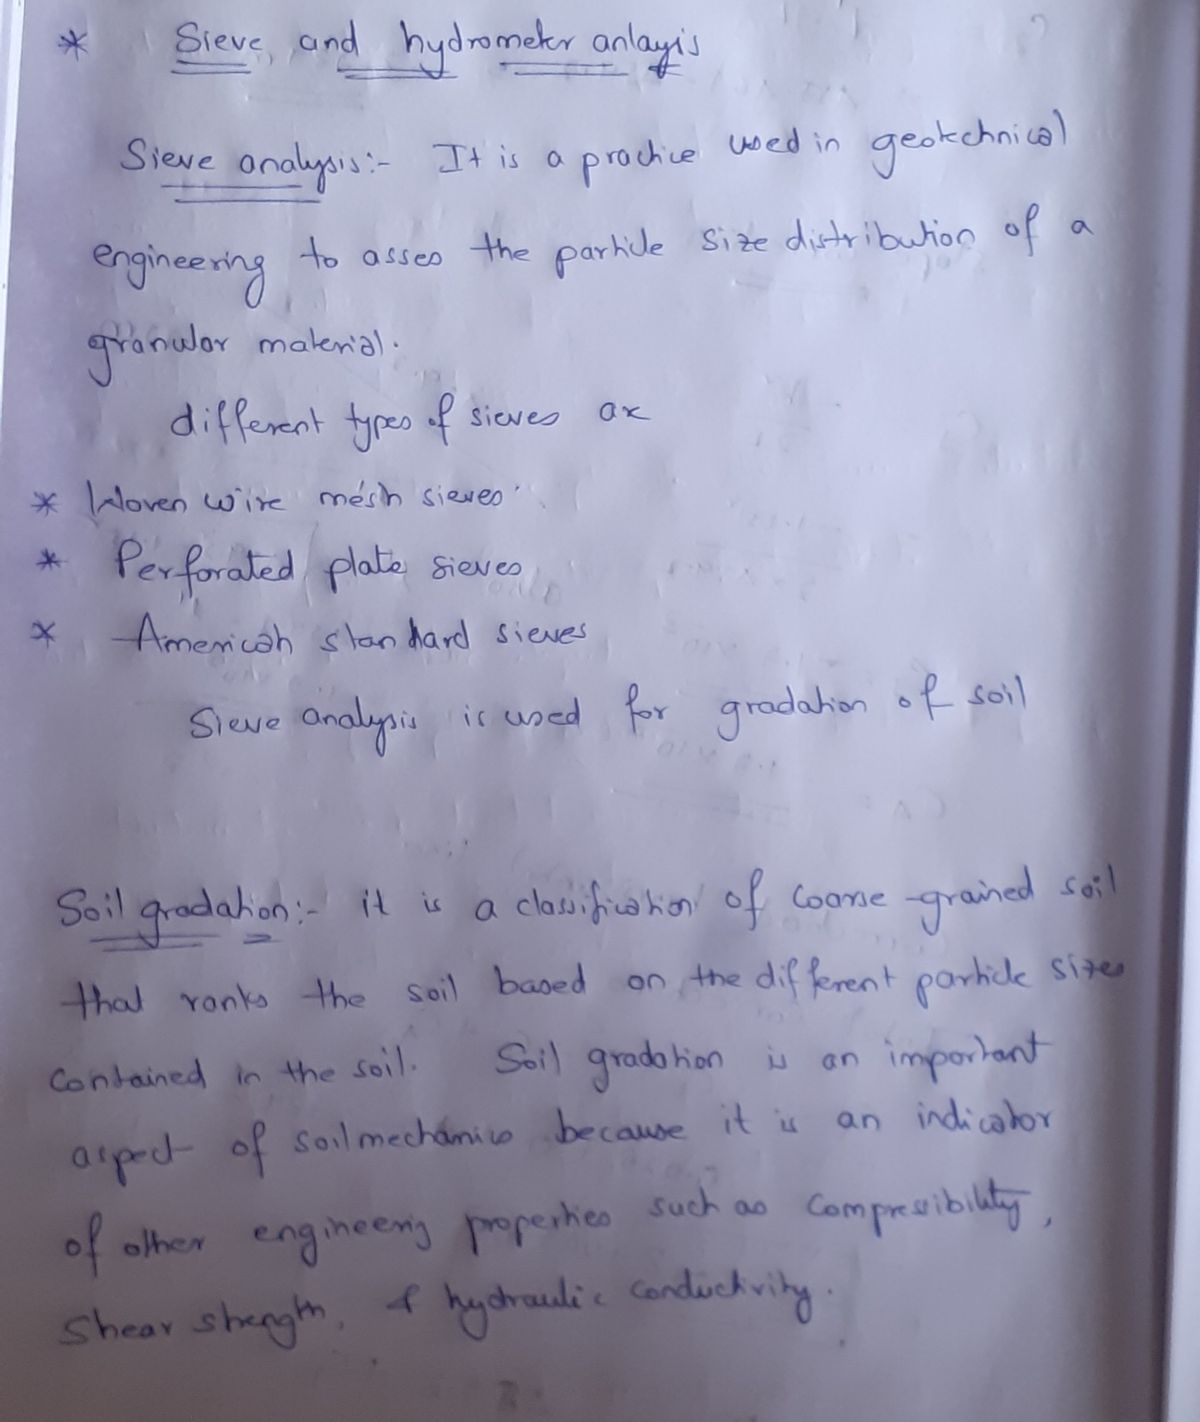 * Sieve, and hydrometer anlayis
Sieve analysis:- It is a practice used in geotechnical
engineering to asses the particle size distribution of a
granular material.
different types of sieves are
* Woven wire mesh sieves
* Perforated plate sieves
* American standard sieves
Sieve analysis is used for gradation of soil
Soil gradation:- it is a classification of coarse-grained soil
that ranks the soil based on the different particle sizes
contained in the soil. Soil gradation is an important
aspect of soil mechanics because it is an indicator
of other engineering properties such as compressibility,
Shear strength, & hydraulic conductivity.